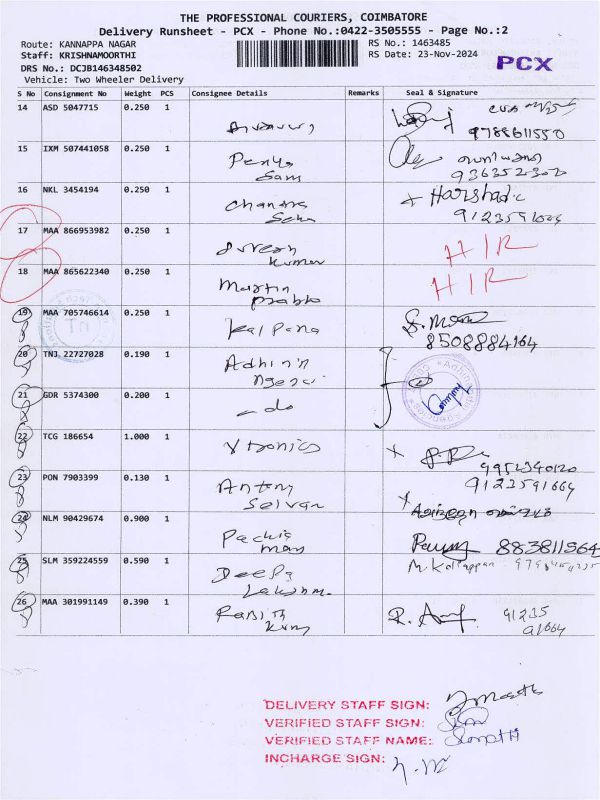 THE PROFESSIONAL COURIERS, COIMBATORE
Delivery Runsheet - PCX - Phone No.:0422-3505555 - Page No.:2
Route: KANNAPPA NAGAR
RS No.: 1463485
Staff: KRISHNAMOORTHI
RS Date: 23-Nov-2024
PCX
DRS No.: DCJB146348502
Vehicle: Two Wheeler Delivery
S No Consignment No Weight PCS Consignee Details Remarks Seal & Signature
14 ASD 5047715 0.250 1
9788611550
15 IXM 507441058 0.250 1 Penya
Sam
16 NKL 3454194 0.250 1 Chandra
Harshad
17 MAA 866953982 0.250 1 Suresh
Kumar
HIR
18 MAA 865622340 0.250 1 Martin
Prabhu
HIR
19 MAA 705746614 0.250 1 Kalpana
8508884164
20 TNJ 22727028 0.190 1
21 GDR 5374300 0.200 1 do
22 TCG 186654 1.000 1 Vtronics
9952340120
23 PON 7903399 0.130 1 Antony
Selvan
9123591664
24 NLM 90429674 0.900 1
883811564
25 SLM 359224559 0.590 1 Deepa
Lakshm.
26 MAA 301991149 0.390 1 Ranjith
Kum
91235
91664
DELIVERY STAFF SIGN:
VERIFIED STAFF SIGN:
VERIFIED STAFF NAME:
INCHARGE SIGN: